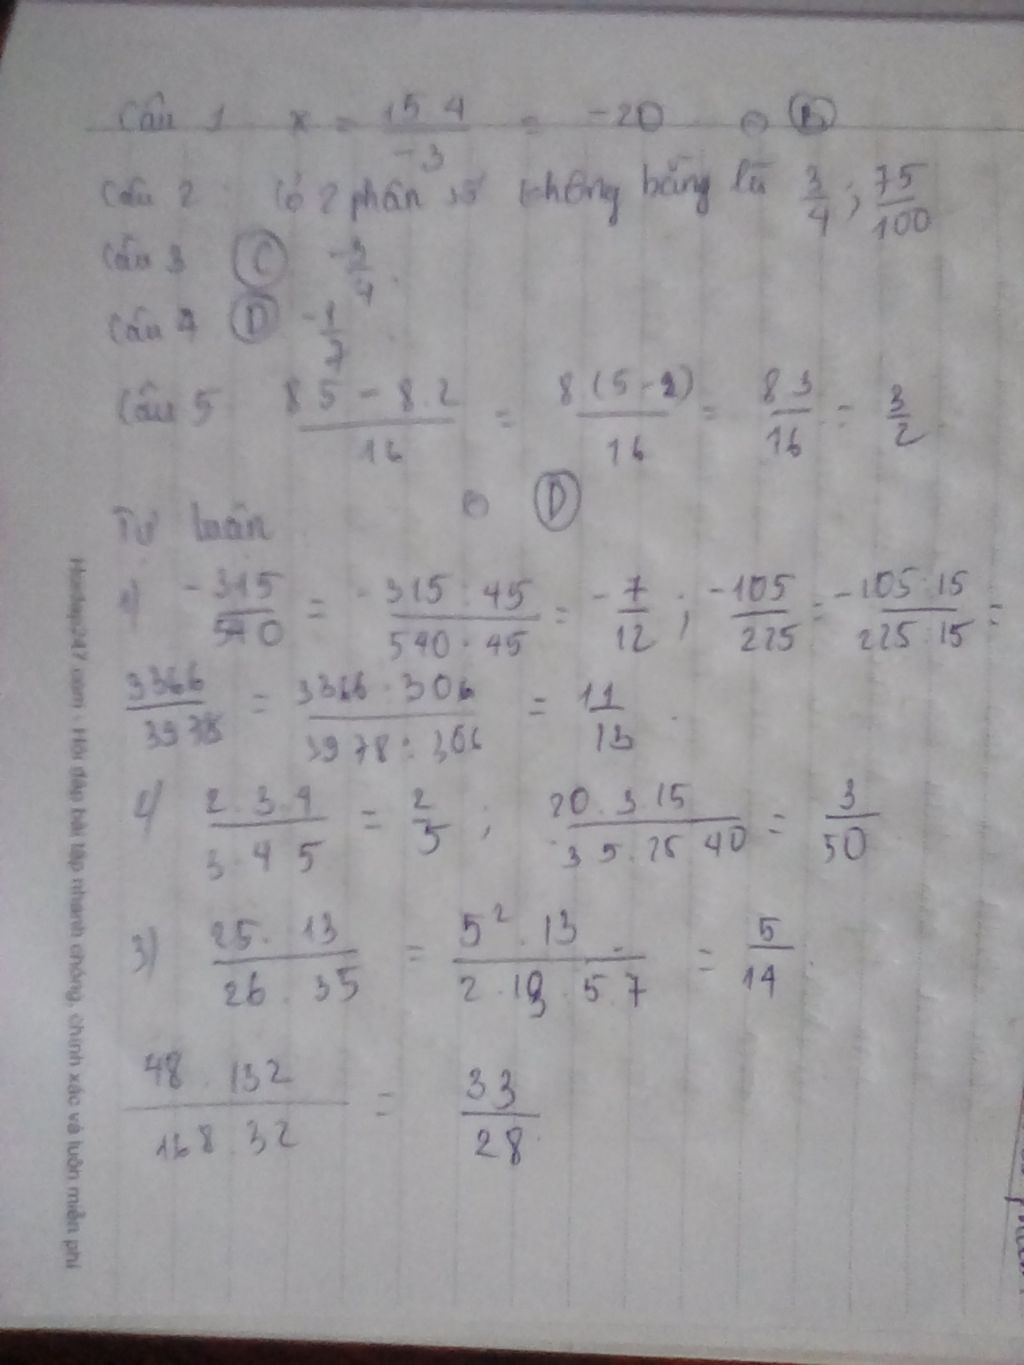 Câu 1 x = 15.4/-3 = -20 ⇒ B
Câu 2: Có 2 phân số không bằng là 3/4; 75/100
Câu 3 C -3/4.
Câu 4 D -1/7
Câu 5 8.5 - 8.2/16 = 8(5-2)/16 = 8.3/16 = 3/2
⇒ D
Tự luận
1) -315/540 = -315:45/540:45 = -7/12; -105/225 = -105:15/225:15 =
3366/3978 = 3366:306/3978:306 = 11/13.
2) 2.3.4/3.4.5 = 2/5; 20.3.15/35.25.40 = 3/50
3) 25.13/26.35 = 5².13/2.13.5.7 = 5/14.
48.132/168.32 = 33/28.
Hoidap247.com - Hỏi đáp bài tập nhanh chóng, chính xác và luôn miễn phí